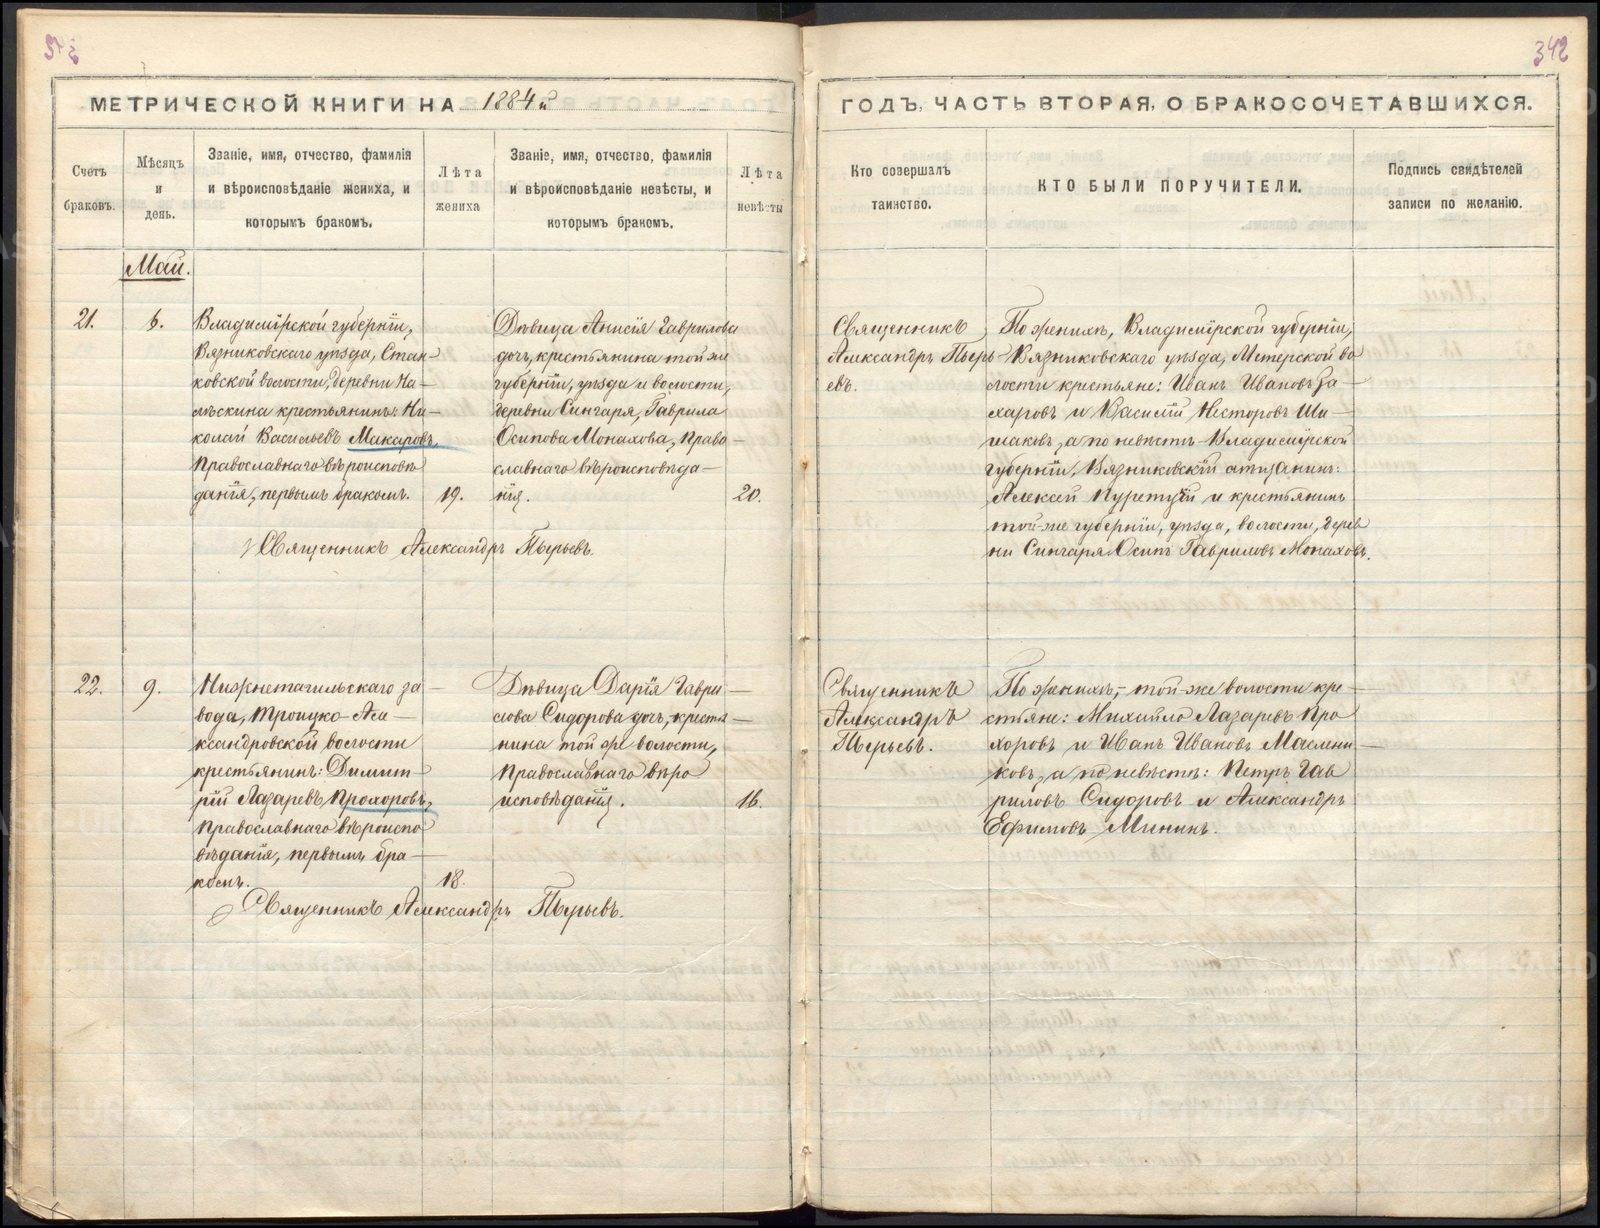 342
МЕТРИЧЕСКОЙ КНИГИ НА 1884й
ГОДЪ, ЧАСТЬ ВТОРАЯ, О БРАКОСОЧЕТАВШИХСЯ.
Счетъ
браковъ.
Мѣсяцъ
и
день.
Званіе, имя, отчество, фамилія
и вѣроисповѣданіе жениха, и
которымъ бракомъ.
Лѣта
жениха
Званіе, имя, отчество, фамилія
и вѣроисповѣданіе невѣсты, и
которымъ бракомъ.
Лѣта
невѣсты
Кто совершалъ
таинство.
КТО БЫЛИ ПОРУЧИТЕЛИ.
Подпись свидѣтелей
записи по желанію.
Май.
21.
6.
Владимірской губерніи,
Вязниковскаго уѣзда, Стан-
ковской волости, деревни На-
лѣскина крестьянинъ: Ни-
колай Васильевъ Макаровъ,
Православнаго вѣроисповѣ
данія, первымъ бракомъ.
19.
Дѣвица Анисія Гаврилова
дочь, крестьянина той же
губерніи, уѣзда и волости,
деревни Сингаря, Гаврила
Осипова Монахова, Право-
славнаго вѣроисповѣда-
нія.
20.
Священникъ Александръ Пырьевъ.
Священникъ
Александръ Пырь
евъ.
По женихѣ, Владимірской губерніи,
Вязниковскаго уѣзда, Мстерской во
лости крестьяне: Иванъ Ивановъ За-
харовъ и Василій Несторовъ Ши-
шаковъ, а по невѣстѣ-Владимірской
губерніи, Вязниковскій мѣщанинъ:
Алексей и крестьянинъ
той-же губерніи, уѣзда, волости, дерев
ни Сингаря Осипъ Гавриловъ Монаховъ.
22.
9.
Нижнетагильскаго за-
вода, Троицко-Але-
ксандровской волости
крестьянинъ: Димит-
рій Лазаревъ Прохоровъ,
Православнаго вѣроиспо
вѣданія, первымъ бра-
комъ.
18.
Дѣвица Дарія Гаври-
лова Сидорова дочь, крестья-
нина той же волости,
Православнаго вѣро
исповѣданія.
16.
Священникъ Александръ Пырьевъ.
Священникъ
Александръ
Пырьевъ.
По женихѣ,-той-же волости кре-
стьяне: Михайло Лазаревъ Про
хоровъ и Иванъ Ивановъ Маслени-
ковъ, а по невѣстѣ: Петръ Гав
риловъ Сидоровъ и Александръ
Ефимовъ Мининъ.